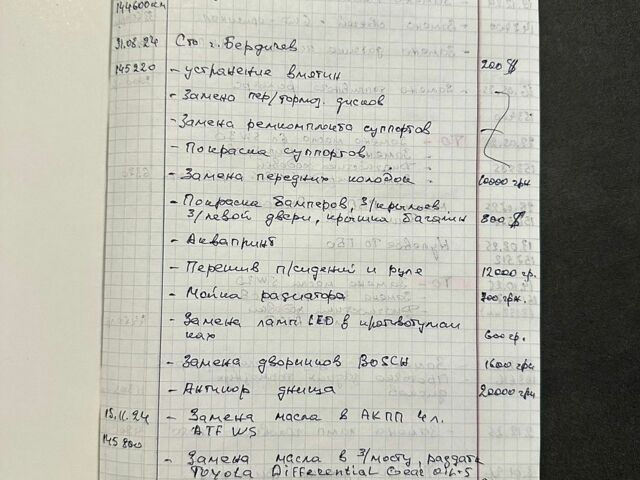 144600км
31.08.24 Сто г. Бердичев
145220 - устранение вмятин 200 $
- Замена пер/тормоз. дисков
- Замена ремкомплекта суппортов
- Покраска суппортов
- Замена передних колодок 10000 грн
- Покраска бамперов, з/крыльев
з/левой двери, крышка багажн 800 $
- Аквапринт
- Перешив п/сидений и руле 12000 гр.
- Мойка радиатора 700 грн.
- Замена ламп LED в противотуман
ках 600 гр.
- Замена дворников BOSCH 1600 грн
- Антикор днища 20000 грн
15.11.24 - Замена масла в АКПП 4л.
ATF WS
145800
- Замена масла в з/мосту, раздатк
Toyota Differential Gear oil